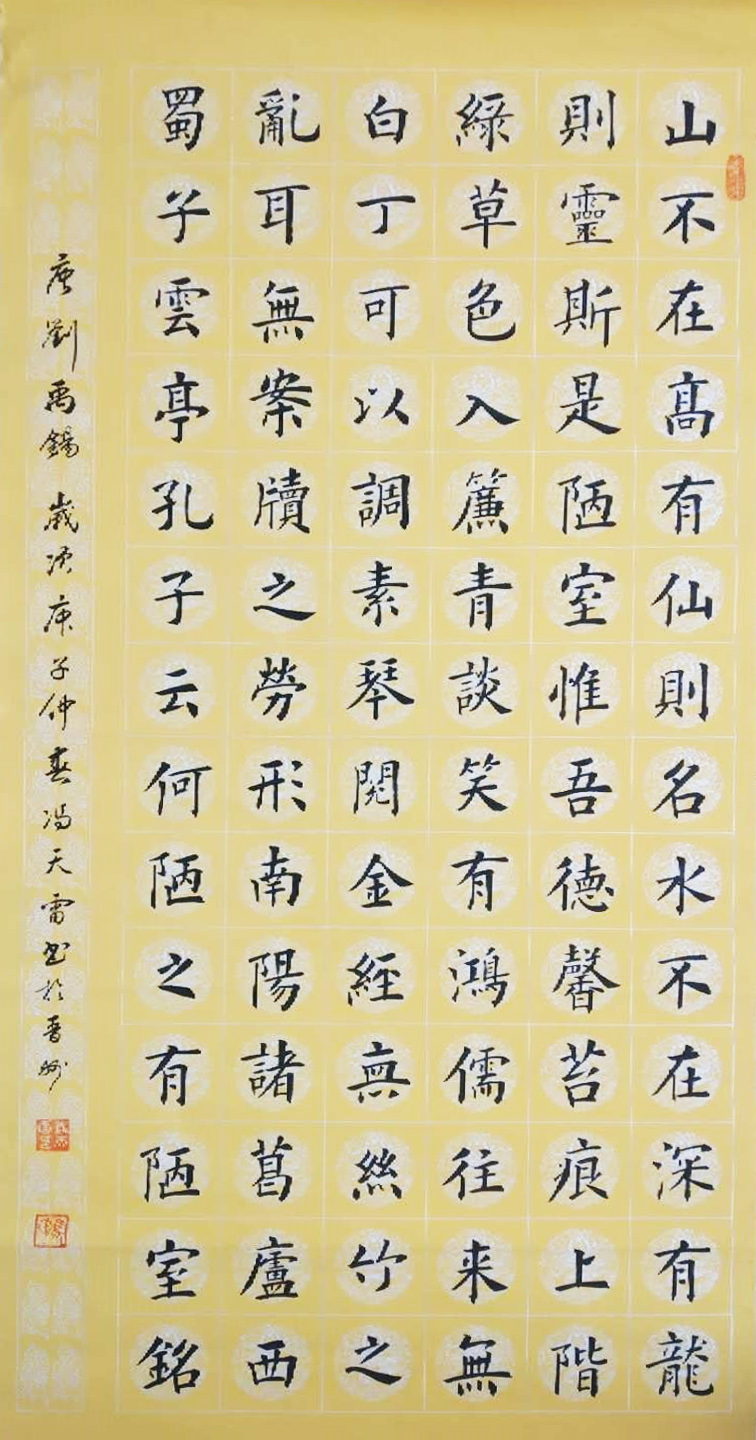 山不在高有仙則名水不在深有龍
則靈斯是陋室惟吾德馨苔痕上階
綠草色入簾青談笑有鴻儒往来無
白丁可以調素琴閱金經無絲竹之
亂耳無案牘之勞形南陽諸葛廬西
蜀子雲亭孔子云何陋之有陋室銘
唐劉禹錫歲次庚子仲春馮天雷书於晋州